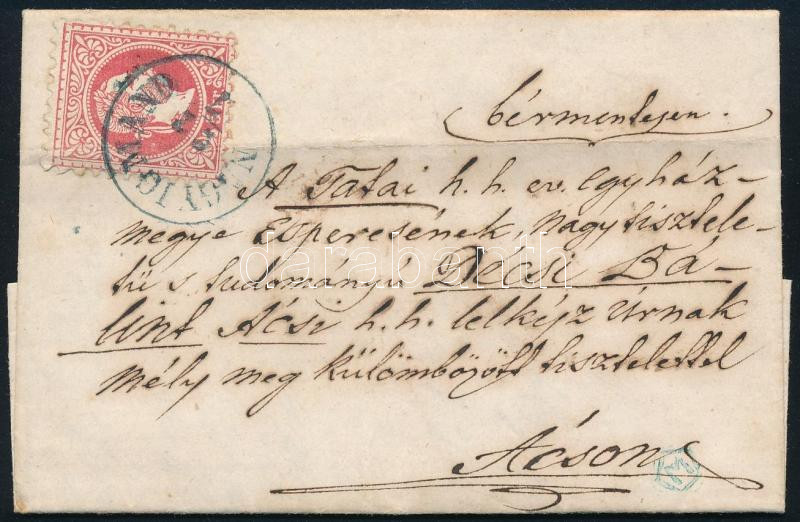 bérmentesen.
A Tatai h. h. ev. egyház-
megye Esperesének, nagytisztele-
tü s tudományú Décsi Bá-
lint Ácsi h. h. lelkész Úrnak
mély meg külömbözött tisztelettel
Ácson
darabanth